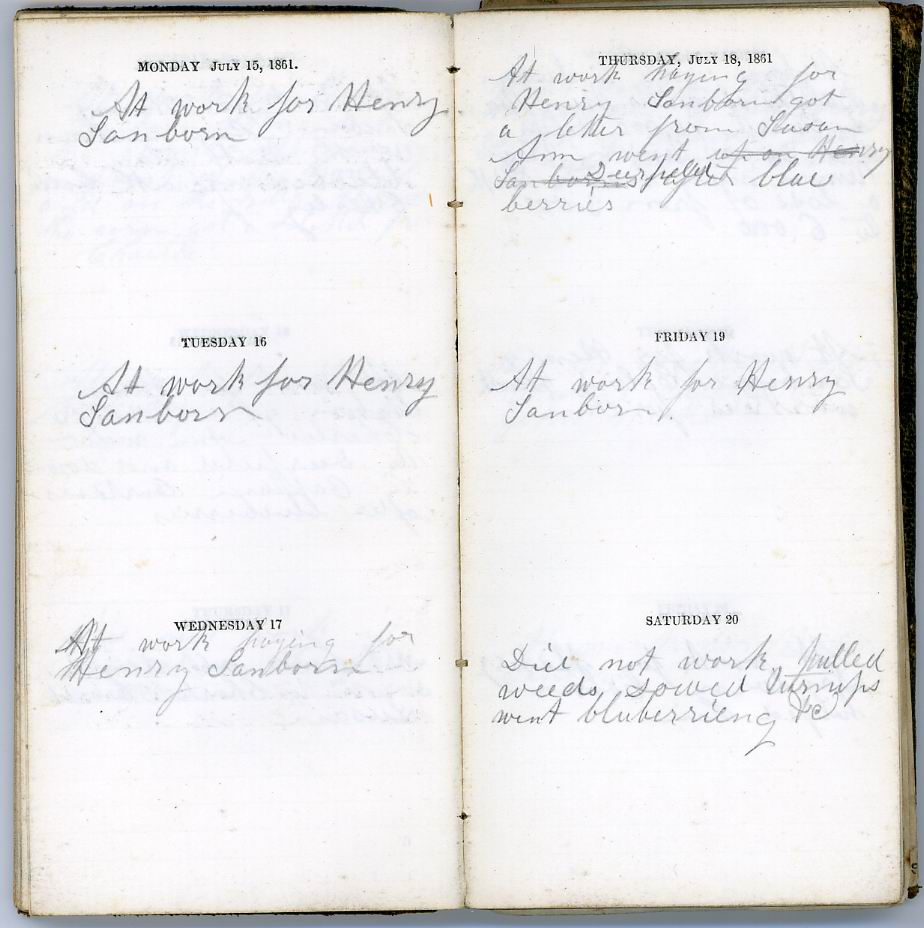 MONDAY JULY 15, 1861.
At work for Henry
Sanborn
TUESDAY 16
At work for Henry
Sanborn
WEDNESDAY 17
At work haying for
Henry Sanborn
THURSDAY, JULY 18, 1861
At work haying for
Henry Sanborn got
a letter from Susan
Ann went up on Henry
Sanborns after blue
berries
FRIDAY 19
At work for Henry
Sanborn.
SATURDAY 20
Did not work, Pulled
weeds, sowed turnips
went bluberrieng &c